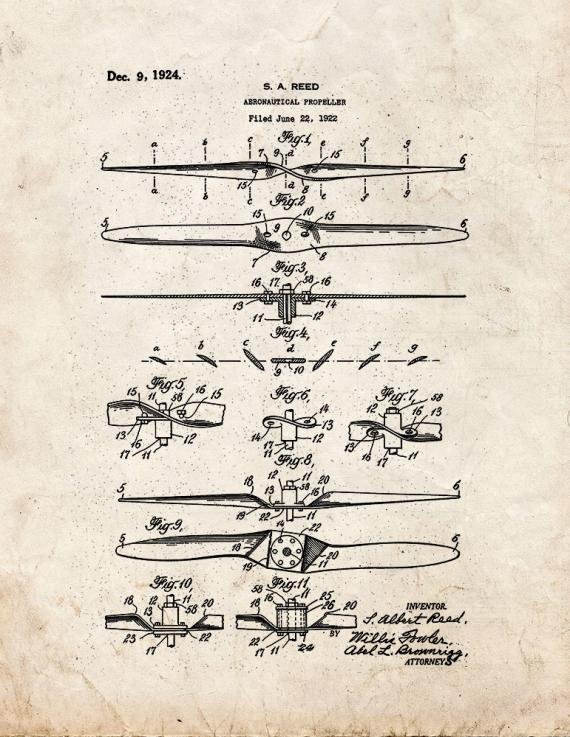 Dec. 9, 1924.
S. A. REED
AERONAUTICAL PROPELLER
Filed June 22, 1922
Fig.1,
a b c 7 9 d e 15 f g
5 6
a b c 15 d 8 e f g
Fig.2
15 10 15
5 9 6
7 8
Fig.3,
16 17 58 16
13 14
11 12
Fig.4,
a b c d e f g
9 10
Fig.5, Fig.6, Fig.7
15 11 58 16 15 14 12 58 16 13
13 16 12 14 13 13 16 12
17 11 12 11 17 11
Fig.8,
18 12 11 20
5 13 58 16 6
19 22 11
Fig.9,
14 22
5 18 20 6
19 11
Fig.10, Fig.11,
18 12 11 20 58 11 25
13 58 18 16 26 20
23 22 22
17 17 11 24
INVENTOR.
S. Albert Reed.
BY
Willis Fowler.
Abel L. Brownrigg,
ATTORNEYS